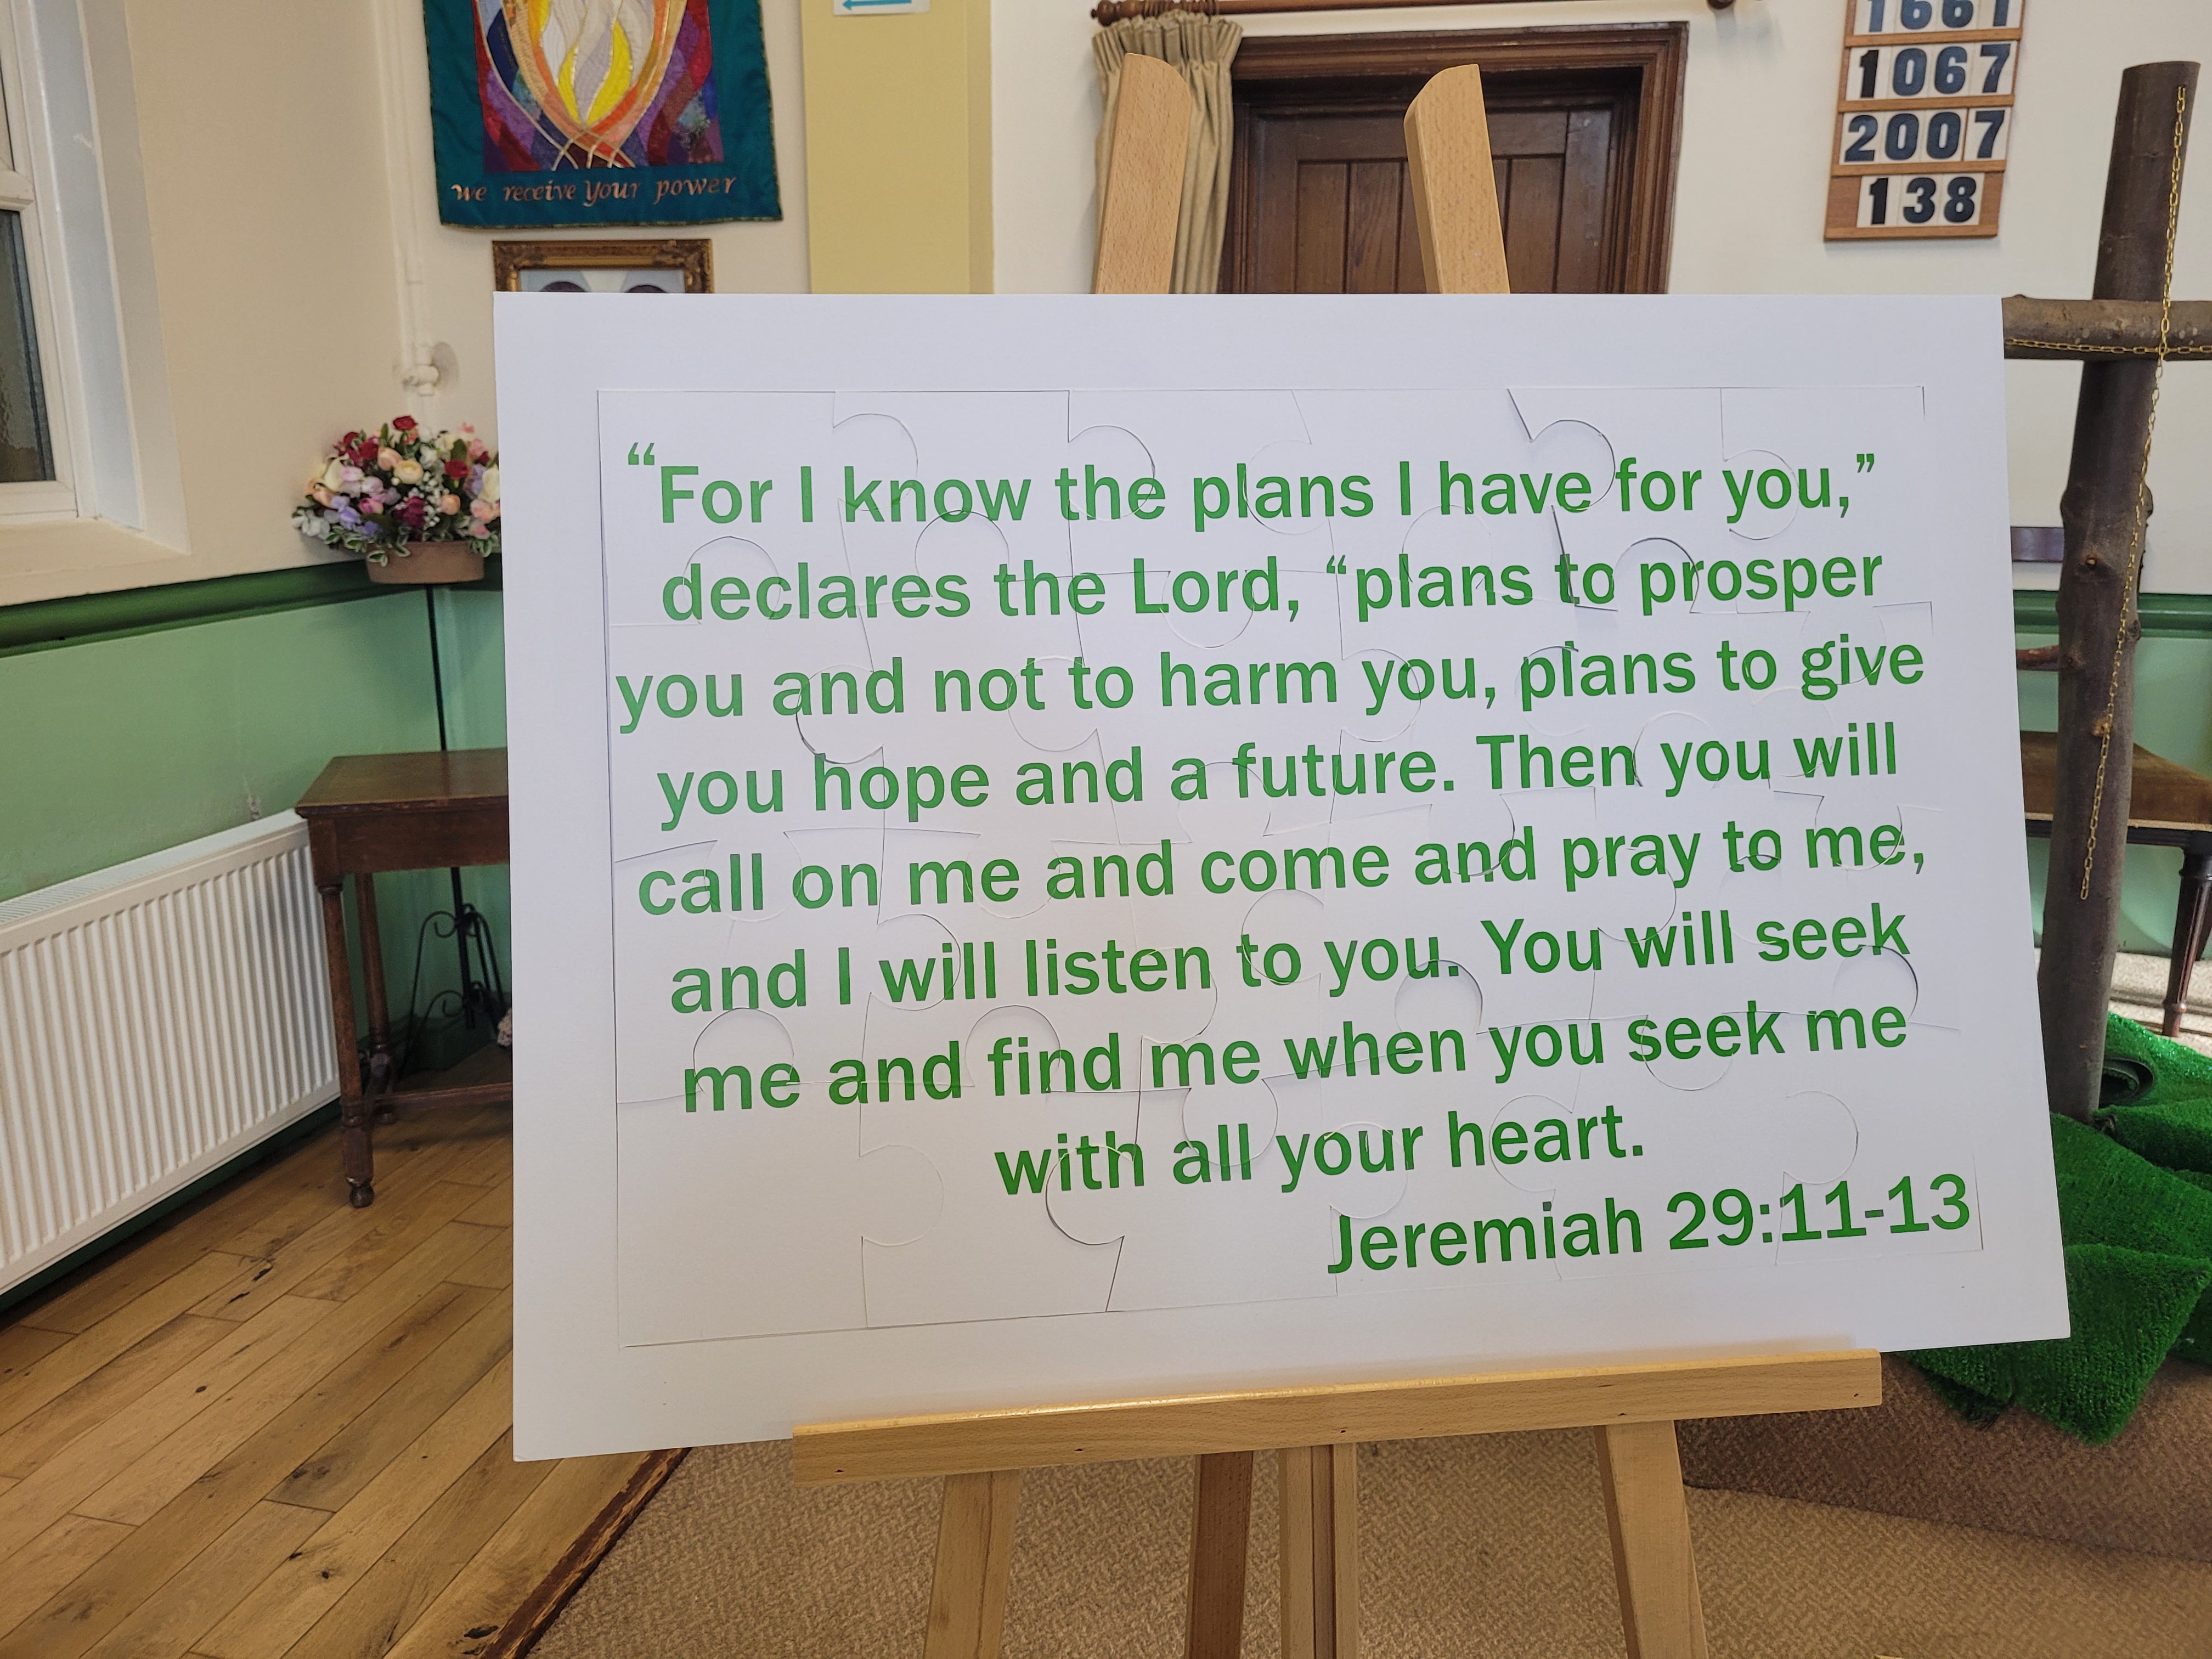 we receive your power
1661
1067
2007
138
“For I know the plans I have for you,”
declares the Lord, “plans to prosper
you and not to harm you, plans to give
you hope and a future. Then you will
call on me and come and pray to me,
and I will listen to you. You will seek
me and find me when you seek me
with all your heart.
Jeremiah 29:11-13